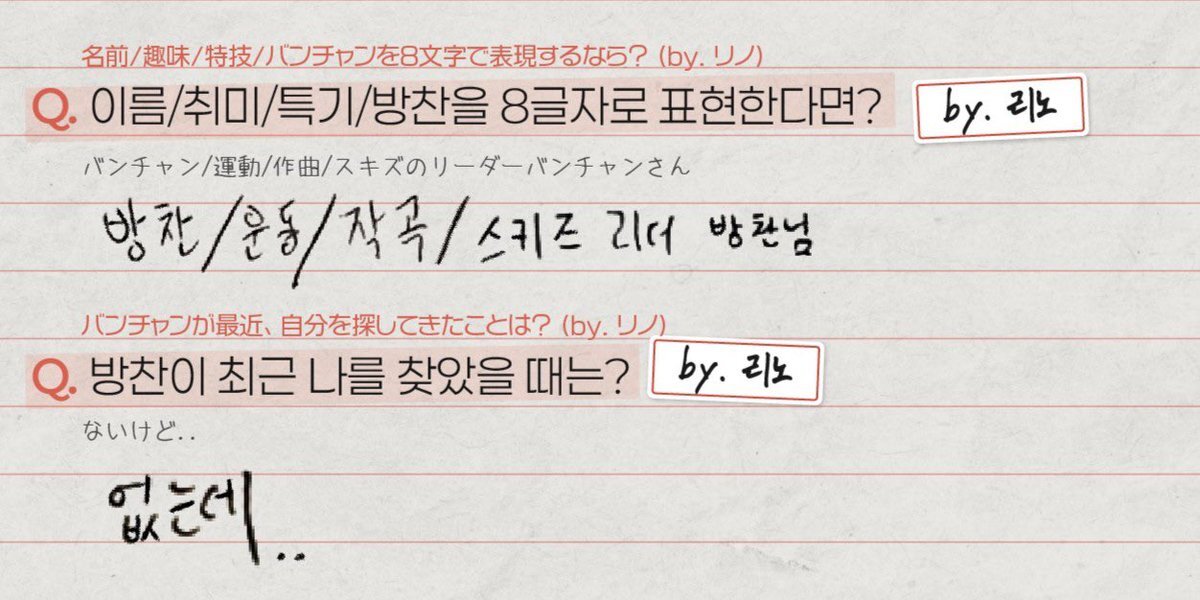 名前/趣味/特技/バンチャンを8文字で表現するなら? (by. リノ)
Q. 이름/취미/특기/방찬을 8글자로 표현한다면? by. 리노
バンチャン/運動/作曲/スキズのリーダーバンチャンさん
방찬/운동/작곡/스키즈 리더 방찬님
バンチャンが最近、自分を探してきたことは? (by. リノ)
Q. 방찬이 최근 나를 찾았을 때는? by. 리노
ないけど..
없는데..